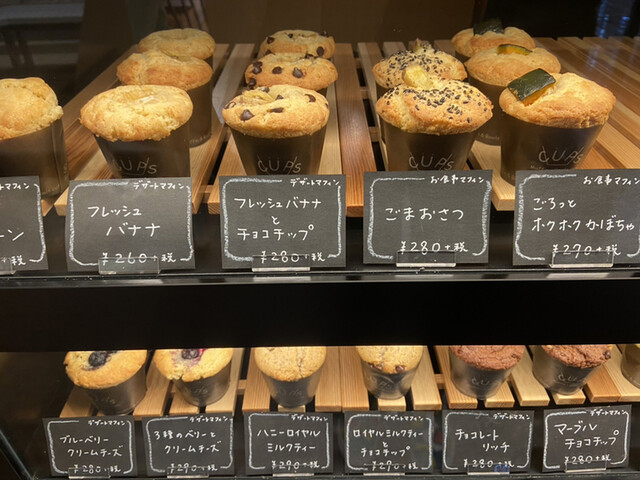 CUPs
CUPs
CUPs
CUPs
ーン
デザートマフィン
フレッシュ
バナナ
¥260+税
デザートマフィン
フレッシュバナナ
と
チョコチップ
¥280+税
お食事マフィン
ごまおさつ
¥280+税
お食事マフィン
ごろっと
ホクホクかぼちゃ
¥270+税
デザートマフィン
ブルーベリー
クリームチーズ
¥280+税
デザートマフィン
3種のベリーと
クリームチーズ
¥290+税
デザートマフィン
ハニーロイヤル
ミルクティー
¥290+税
デザートマフィン
ロイヤルミルクティー
と
チョコチップ
¥290+税
デザートマフィン
チョコレート
リッチ
¥280+税
デザートマフィン
マーブル
チョコチップ
¥280+税